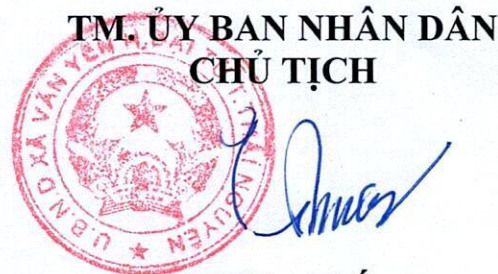 TM. ỦY BAN NHÂN DÂN
CHỦ TỊCH
U.B.N.D XÃ VĂN YÊN H.ĐẠI T. NGUYÊN